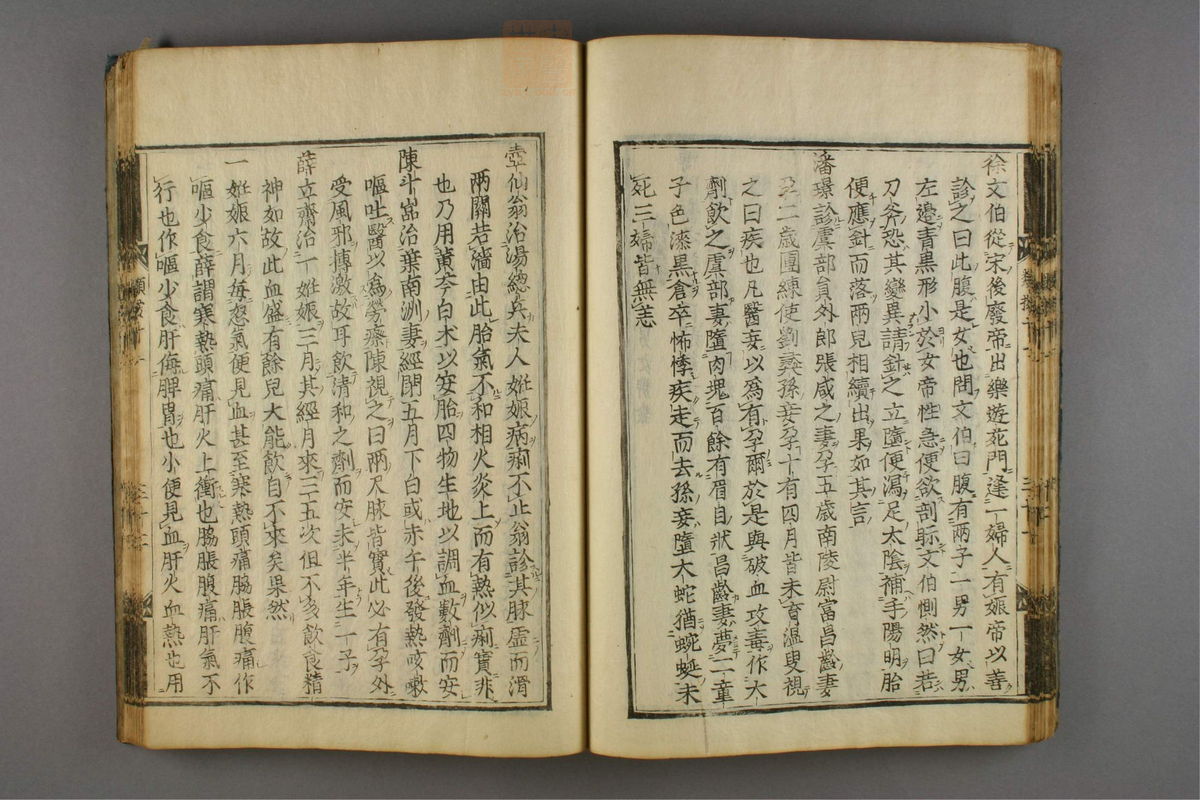 徐文伯從宋後廢帝出樂遊苑門逢一婦人有娠帝以善
診之曰此腹是女也問文伯曰腹有兩子一男一女男
左邊青黒形小於女帝性急便欲剖𦕅文伯惻然曰若
刀斧恐其變異請針之立墮便瀉足太陰補手陽明胎
便應針而落兩兒相續出果如其言
潘璟診虞部員外郎張咸之妻孕五歳南陵尉富昌齡妻
孕二歳團練使劉彜孫妾孕十有四月皆未育温叟視
之曰疾也凡醫妄以爲有孕爾於是與破血攻毒作大
劑飲之虞部妻墮肉塊百餘有眉目狀昌齡妻夢二童
子色漆黒倉卒怖悸疾走而去孫妾墮大蛇猶蜿蜒未
死三婦皆無恙
壺仙翁治湯總兵夫人姙娠病痢不止翁診其脉虚而滑
兩關若濇由此胎氣不和相火炎上而有熱似痢實非
也乃用黄芩白术以安胎四物生地以調血數劑而安
陳斗嵓治葉南洲妻經閉五月下白或赤午後發熱咳嗽
嘔吐醫以爲勞瘵陳視之曰兩尺脉皆實此必有孕外
受風邪搏激故耳飲清和之劑而安未半年生一子
薛立齋治一姙娠三月其經月來三五次但不多飲食精
神如故此血盛有餘兒大能飲自不來矣果然
一姙娠六月毎怒氣便見血甚至寒熱頭痛脇脹腹痛作
嘔少食薛謂寒熱頭痛肝火上衝也脇脹腹痛肝氣不
行也作嘔少食肝侮脾胃也小便見血肝火血熱也用